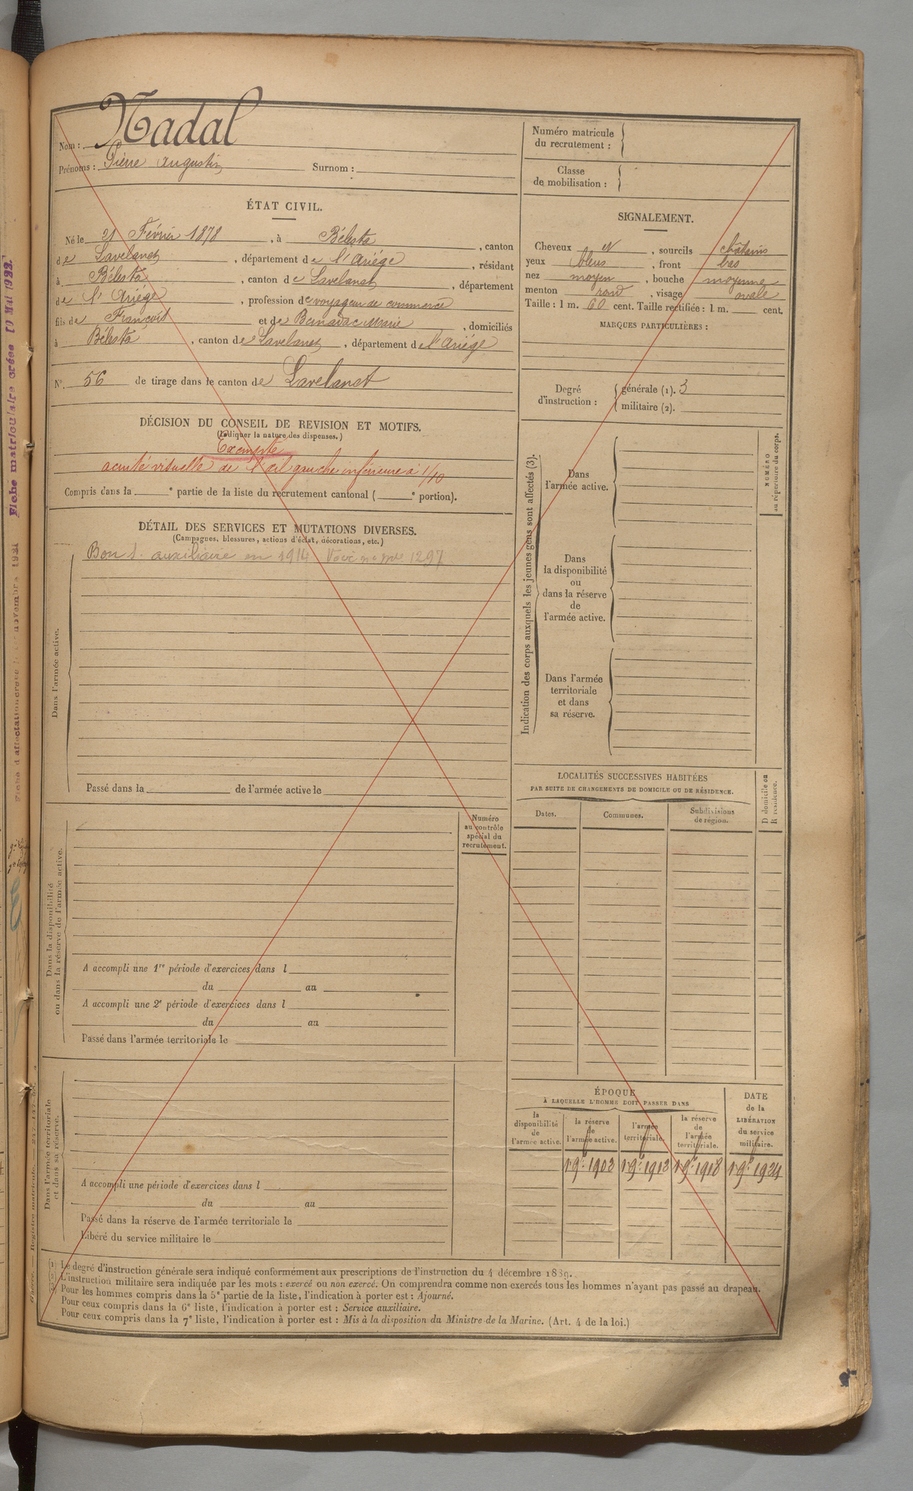 Nom : Nadal
Prénoms : Pierre Augustin Surnom :
ÉTAT CIVIL.
Né le 21 Février 1878, à Bélesta, canton
de Lavelanet, département de l'Ariége, résidant
à Bélesta, canton de Lavelanet, département
de l'Ariége, profession de voyageur de commerce
fils de François et de Bernadac Marie, domiciliés
à Bélesta, canton de Lavelanet, département de l'Ariége
N° 56 de tirage dans le canton de Lavelanet
DÉCISION DU CONSEIL DE REVISION ET MOTIFS.
(Indiquer la nature des dispenses.)
Exempté
acuité visuelle de l'œil gauche inférieure à 1/10
Compris dans la e partie de la liste du recrutement cantonal ( e portion).
DÉTAIL DES SERVICES ET MUTATIONS DIVERSES.
(Campagnes, blessures, actions d'éclat, décorations, etc.)
Bon S. auxiliaire en 1914 1297
Dans l'armée active.
Passé dans la de l'armée active le
Numéro
au contrôle
spécial du
recrutement.
Dans la disponibilité
ou dans la réserve de l'armée active.
A accompli une 1re période d'exercices dans l
du au
A accompli une 2e période d'exercices dans l
du au
Passé dans l'armée territoriale le
Dans l'armée territoriale
et dans sa réserve.
A accompli une période d'exercices dans l
du au
Passé dans la réserve de l'armée territoriale le
Libéré du service militaire le
Numéro matricule
du recrutement :
Classe
de mobilisation :
SIGNALEMENT.
Cheveux et, sourcils châtains
yeux bleus, front bas
nez moyen, bouche moyenne
menton rond, visage ovale
Taille : 1 m. 60 cent. Taille rectifiée : 1 m. cent.
MARQUES PARTICULIÈRES :
Degré
d'instruction :
générale (1). 3
militaire (2).
Indication des corps auxquels les jeunes gens sont affectés (3).
NUMÉRO
au répertoire du corps.
Dans
l'armée active.
Dans
la disponibilité
ou
dans la réserve
de
l'armée active.
Dans l'armée
territoriale
et dans
sa réserve.
LOCALITÉS SUCCESSIVES HABITÉES
PAR SUITE DE CHANGEMENTS DE DOMICILE OU DE RÉSIDENCE.
D domicile ou
R résidence.
Dates.
Communes.
Subdivisions
de région.
ÉPOQUE
À LAQUELLE L'HOMME DOIT PASSER DANS
DATE
de la
LIBÉRATION
du service
militaire.
la
disponibilité
de
l'armée active.
la réserve
de
l'armée active.
l'armée
territoriale.
la réserve
de
l'armée
territoriale.
1 9bre 1902
1 9bre 1912
1 9bre 1918
1 9bre 1924
(1) Le degré d'instruction générale sera indiqué conformément aux prescriptions de l'instruction du 4 décembre 1889.
(2) L'instruction militaire sera indiquée par les mots : exercé ou non exercé. On comprendra comme non exercés tous les hommes n'ayant pas passé au drapeau.
(3) Pour les hommes compris dans la 5e partie de la liste, l'indication à porter est : Ajourné.
Pour ceux compris dans la 6e liste, l'indication à porter est : Service auxiliaire.
Pour ceux compris dans la 7e liste, l'indication à porter est : Mis à la disposition du Ministre de la Marine. (Art. 4 de la loi.)